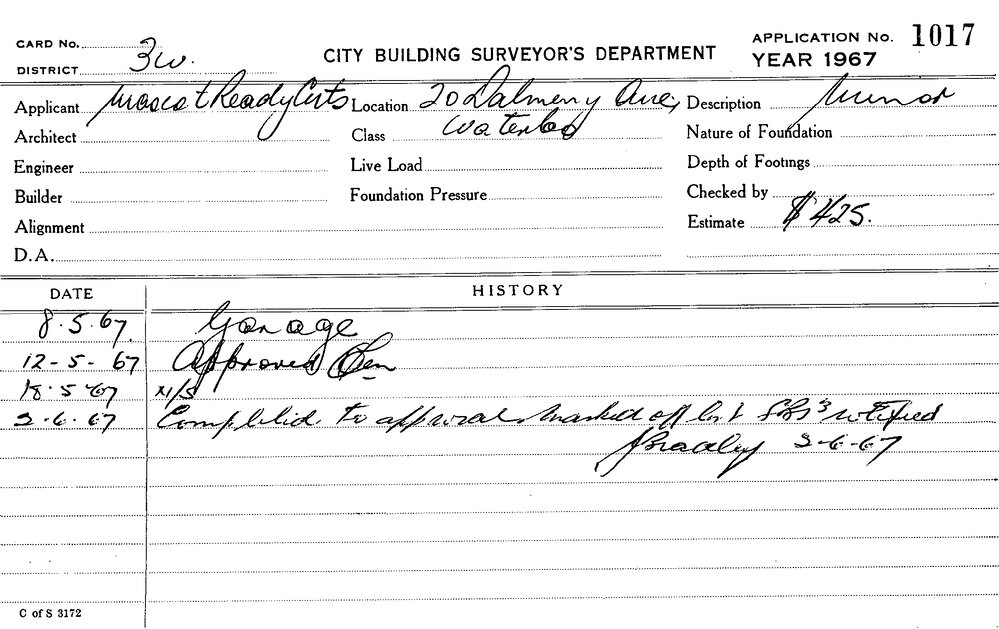 CARD No.
DISTRICT 3w.
CITY BUILDING SURVEYOR'S DEPARTMENT
APPLICATION No. 1017
YEAR 1967
Applicant Mascot Ready Cuts Location 20 Dalmeny Ave, Description Minor
Waterloo
Architect Class Nature of Foundation
Engineer Live Load Depth of Footings
Builder Foundation Pressure Checked by
Alignment Estimate $425.
D.A.
DATE HISTORY
8.5.67 Garage
12-5-67 Approved
18.5.67 N/S
2.6.67 Completed to approval marked off notified
JBradley 2-6-67
C of S 3172